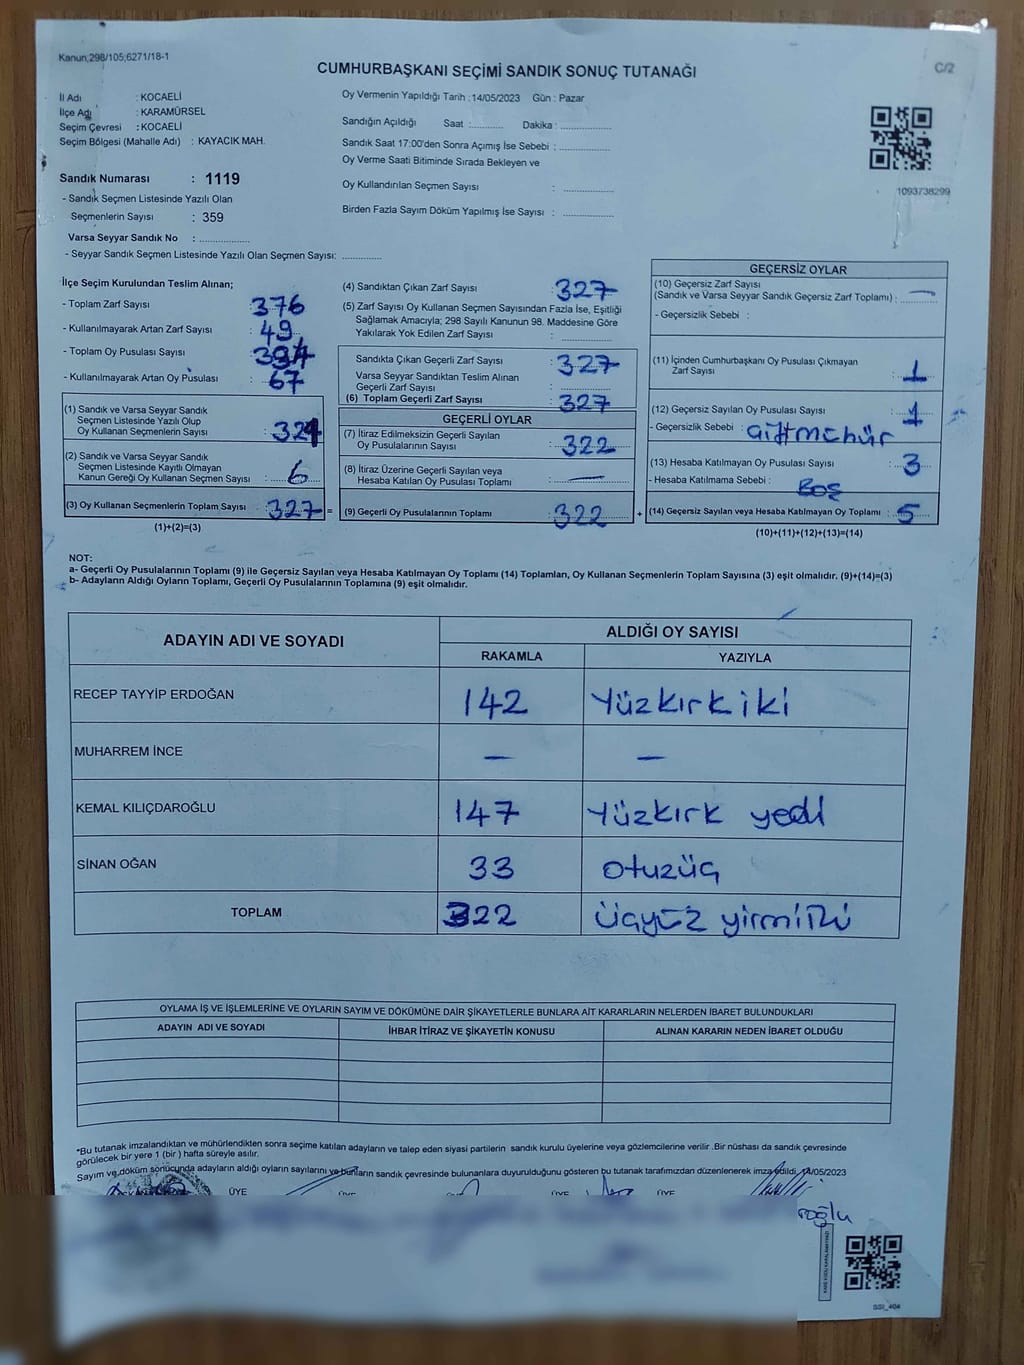 Kanun;298/105;6271/18-1
C/2
CUMHURBAŞKANI SEÇİMİ SANDIK SONUÇ TUTANAĞI
İl Adı : KOCAELİ
İlçe Adı : KARAMÜRSEL
Seçim Çevresi : KOCAELİ
Seçim Bölgesi (Mahalle Adı) : KAYACIK MAH.
Sandık Numarası : 1119
- Sandık Seçmen Listesinde Yazılı Olan
Seçmenlerin Sayısı : 359
Varsa Seyyar Sandık No : ................
- Seyyar Sandık Seçmen Listesinde Yazılı Olan Seçmen Sayısı: .............
Oy Vermenin Yapıldığı Tarih : 14/05/2023 Gün : Pazar
Sandığın Açıldığı Saat :........... Dakika :................
Sandık Saat 17:00'den Sonra Açımış İse Sebebi : ................
Oy Verme Saati Bitiminde Sırada Bekleyen ve
Oy Kullandırılan Seçmen Sayısı : ................
Birden Fazla Sayım Döküm Yapılmış İse Sayısı : ................
1093738299
İlçe Seçim Kurulundan Teslim Alınan;
- Toplam Zarf Sayısı : 376
- Kullanılmayarak Artan Zarf Sayısı : 49
- Toplam Oy Pusulası Sayısı : 394
- Kullanılmayarak Artan Oy Pusulası : 67
(1) Sandık ve Varsa Seyyar Sandık
Seçmen Listesinde Yazılı Olup
Oy Kullanan Seçmenlerin Sayısı : 321
(2) Sandık ve Varsa Seyyar Sandık
Seçmen Listesinde Kayıtlı Olmayan
Kanun Gereği Oy Kullanan Seçmen Sayısı : 6
(3) Oy Kullanan Seçmenlerin Toplam Sayısı : 327 =
(1)+(2)=(3)
(4) Sandıktan Çıkan Zarf Sayısı : 327
(5) Zarf Sayısı Oy Kullanan Seçmen Sayısından Fazla İse, Eşitliği
Sağlamak Amacıyla; 298 Sayılı Kanunun 98. Maddesine Göre
Yakılarak Yok Edilen Zarf Sayısı : ................
Sandıkta Çıkan Geçerli Zarf Sayısı : 327
Varsa Seyyar Sandıktan Teslim Alınan
Geçerli Zarf Sayısı : ................
(6) Toplam Geçerli Zarf Sayısı : 327
GEÇERLİ OYLAR
(7) İtiraz Edilmeksizin Geçerli Sayılan
Oy Pusulalarının Sayısı : 322
(8) İtiraz Üzerine Geçerli Sayılan veya
Hesaba Katılan Oy Pusulası Toplamı : —
(9) Geçerli Oy Pusulalarının Toplamı : 322 +
GEÇERSİZ OYLAR
(10) Geçersiz Zarf Sayısı
(Sandık ve Varsa Seyyar Sandık Geçersiz Zarf Toplamı) : —
- Geçersizlik Sebebi :
(11) İçinden Cumhurbaşkanı Oy Pusulası Çıkmayan
Zarf Sayısı : 1
(12) Geçersiz Sayılan Oy Pusulası Sayısı : 1
- Geçersizlik Sebebi :
(13) Hesaba Katılmayan Oy Pusulası Sayısı : 3
- Hesaba Katılmama Sebebi : Boş
(14) Geçersiz Sayılan veya Hesaba Katılmayan Oy Toplamı : 5
(10)+(11)+(12)+(13)=(14)
NOT:
a- Geçerli Oy Pusulalarının Toplamı (9) ile Geçersiz Sayılan veya Hesaba Katılmayan Oy Toplamı (14) Toplamları, Oy Kullanan Seçmenlerin Toplam Sayısına (3) eşit olmalıdır. (9)+(14)=(3)
b- Adayların Aldığı Oyların Toplamı, Geçerli Oy Pusulalarının Toplamına (9) eşit olmalıdır.
ADAYIN ADI VE SOYADI ALDIĞI OY SAYISI
RAKAMLA YAZIYLA
RECEP TAYYİP ERDOĞAN 142 Yüzkırkiki
MUHARREM İNCE — —
KEMAL KILIÇDAROĞLU 147 Yüzkırk yedi
SİNAN OĞAN 33 otuzüç
TOPLAM 322 üçyüz yirmiiki
OYLAMA İŞ VE İŞLEMLERİNE VE OYLARIN SAYIM VE DÖKÜMÜNE DAİR ŞİKAYETLERLE BUNLARA AİT KARARLARIN NELERDEN İBARET BULUNDUKLARI
ADAYIN ADI VE SOYADI İHBAR İTİRAZ VE ŞİKAYETİN KONUSU ALINAN KARARIN NEDEN İBARET OLDUĞU
*Bu tutanak imzalandıktan ve mühürlendikten sonra seçime katılan adayların ve talep eden siyasi partilerin sandık kurulu üyelerine veya gözlemcilerine verilir .Bir nüshası da sandık çevresinde
görülecek bir yere 1 (bir ) hafta süreyle asılır.
Sayım ve döküm sonucunda adayların aldığı oyların sayılarını ve bunların sandık çevresinde bulunanlara duyurulduğunu gösteren bu tutanak tarafımızdan düzenlenerek imza edildi. 14/05/2023
ÜYE ÜYE ÜYE ÜYE
roğlu
SSI_404